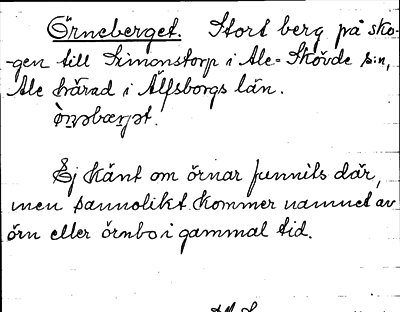 Örneberget. Stort berg på sko-
-gen till Simonstorp i Ale-Skövde s:n,
Ale härad i Älfsborgs län.
Ej känt om örnar funnits där,
men sannolikt kommer namnet av
örn eller örnbo i gammal tid.